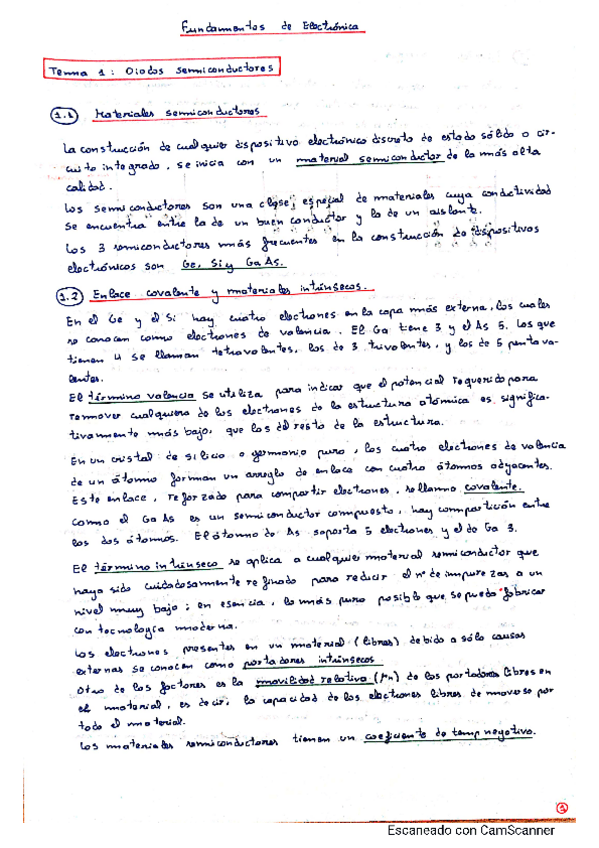 Fundamentos de Electrónica
Tema 1: Diodos semiconductores
1.1 Materiales semiconductores
La construcción de cualquier dispositivo electrónico discreto de estado sólido o cir-
cuito integrado, se inicia con un material semiconductor de la más alta
calidad.
Los semiconductores son una clase especial de materiales cuya conductividad
se encuentra entre la de un buen conductor y la de un aislante.
Los 3 semiconductores más frecuentes en la construcción de dispositivos
electrónicos son Ge, Si y GaAs.
1.2 Enlace covalente y materiales intrínsecos.
En el Ge y el Si hay cuatro electrones en la capa más externa, los cuales
se conocen como electrones de valencia. El Ga tiene 3 y el As 5. Los que
tienen 4 se llaman tetravalentes, los de 3 trivalentes, y los de 5 pentava-
lentes.
El término valencia se utiliza para indicar que el potencial requerido para
remover cualquiera de los electrones de la estructura atómica es significa-
tivamente más bajo, que los del resto de la estructura.
En un cristal de silicio o germanio puro, los cuatro electrones de valencia
de un átomo forman un arreglo de enlace con cuatro átomos adyacentes.
Este enlace, reforzado para compartir electrones, se llama covalente.
Como el GaAs es un semiconductor compuesto, hay compartición entre
los dos átomos. El átomo de As soporta 5 electrones y el de Ga 3.
El término intrínseco se aplica a cualquier material semiconductor que
haya sido cuidadosamente refinado para reducir el nº de impurezas a un
nivel muy bajo; en esencia, lo más puro posible que se pueda fabricar
con tecnología moderna.
Los electrones presentes en un material (libres) debido a sólo causas
externas se conocen como portadores intrínsecos
Otro de los factores es la movilidad relativa (μn) de los portadores libres en
el material, es decir, la capacidad de los electrones libres de moverse por
todo el material.
Los materiales semiconductores tienen un coeficiente de temp negativo.
1
Escaneado con CamScanner